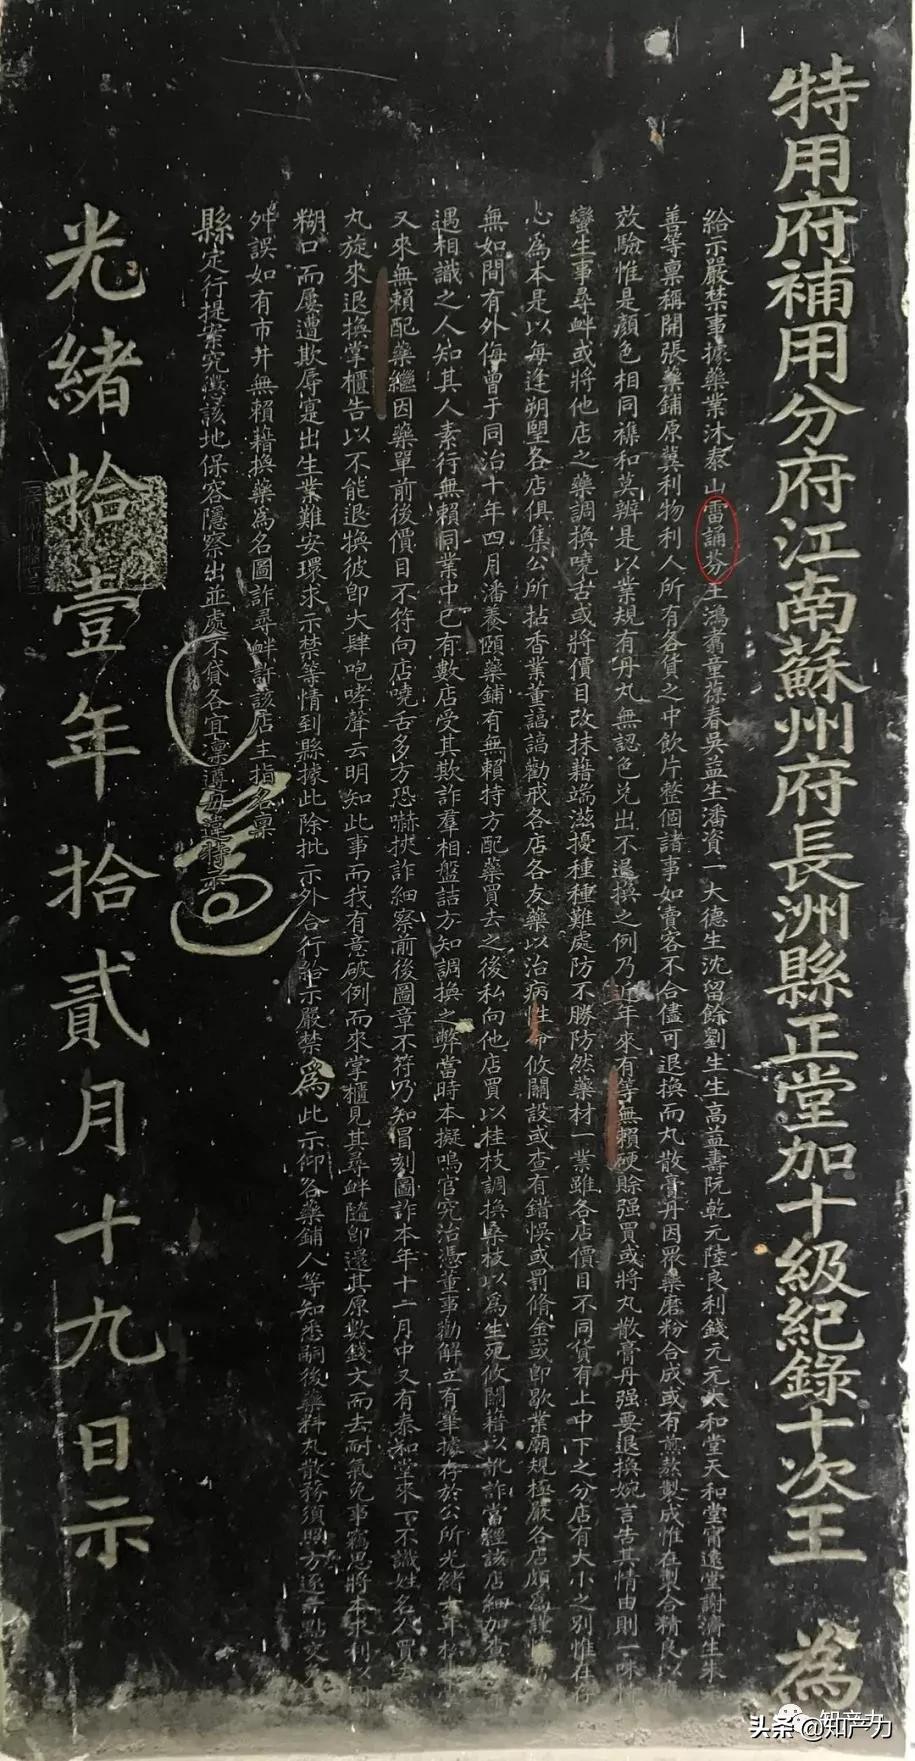 特用府補用分府江南蘇州府長洲縣正堂加十級紀錄十次王 為
給示嚴禁事據藥業沐泰山雷誦芬王鴻翥童葆春吳益生潘資一大德生沈留餘劉生生高益壽阮乾元陸良利錢元元太和堂天和堂甯遠堂謝濟生朱
善等稟稱開張藥鋪原冀利物利人所有各貨之中飲片整個諸事如賣客不合儘可退換而丸散膏丹因眾藥磨粉合成或有煎熬製成惟在製合精良以
效驗惟是顏色相同襍和莫辦是以業規有丹丸無認色兌出不退換之例乃近年來有等無賴硬賒强買或將丸散膏丹强要退換婉言告其情由則一味
蠻生事尋衅或將他店之藥調換嘵舌或將價目改抹藉端滋擾種種難處防不勝防然藥材一業雖各店價目不同貨有上中下之分店有大小之別惟在存
心為本是以每逢朔朢各店俱集公所拈香業董諄諄勸戒各店各友藥以治病性命攸關設或查有錯悞或罰偹金或卽歇業廟規極嚴各店頗為謹
無如間有外侮曾于同治十年四月潘養頤藥鋪有無賴持方配藥買去之後私向他店買以桂枝調換桑枝以為生死攸關藉以訛詐當經該店細加查
遇相識之人知其人素行無賴同業中已有數店受其欺詐羣相盤詰方知調換之弊當時本擬鳴官究治憑董事勸解立有筆據存於公所光緒七年
又來無賴配藥繼因藥單前後價目不符向店嘵舌多方恐嚇挾詐細察前後圖章不符乃知冒刻圖詐本年十一月中又有泰和堂來一不識姓名人買去
丸旋來退換掌櫃告以不能退換彼卽大肆咆哮聲云明知此事而我有意破例而來掌櫃見其尋衅隨卽還其原數錢文而去耐氣免事竊思將本求利以
糊口而屢遭欺辱寔出生業難安環求示禁等情到縣據此除批示外合行給示嚴禁為此示仰各藥鋪人等知悉嗣後藥料丸散務須照方逐一點交
舛誤如有市井無賴藉換藥爲名圖詐尋衅許該店主指名稟
縣定行提案究懲該地保容隱察出並處不貸各宜凜遵毋違特示
光緒拾壹年拾貳月十九日示
头条@知产力
知产力